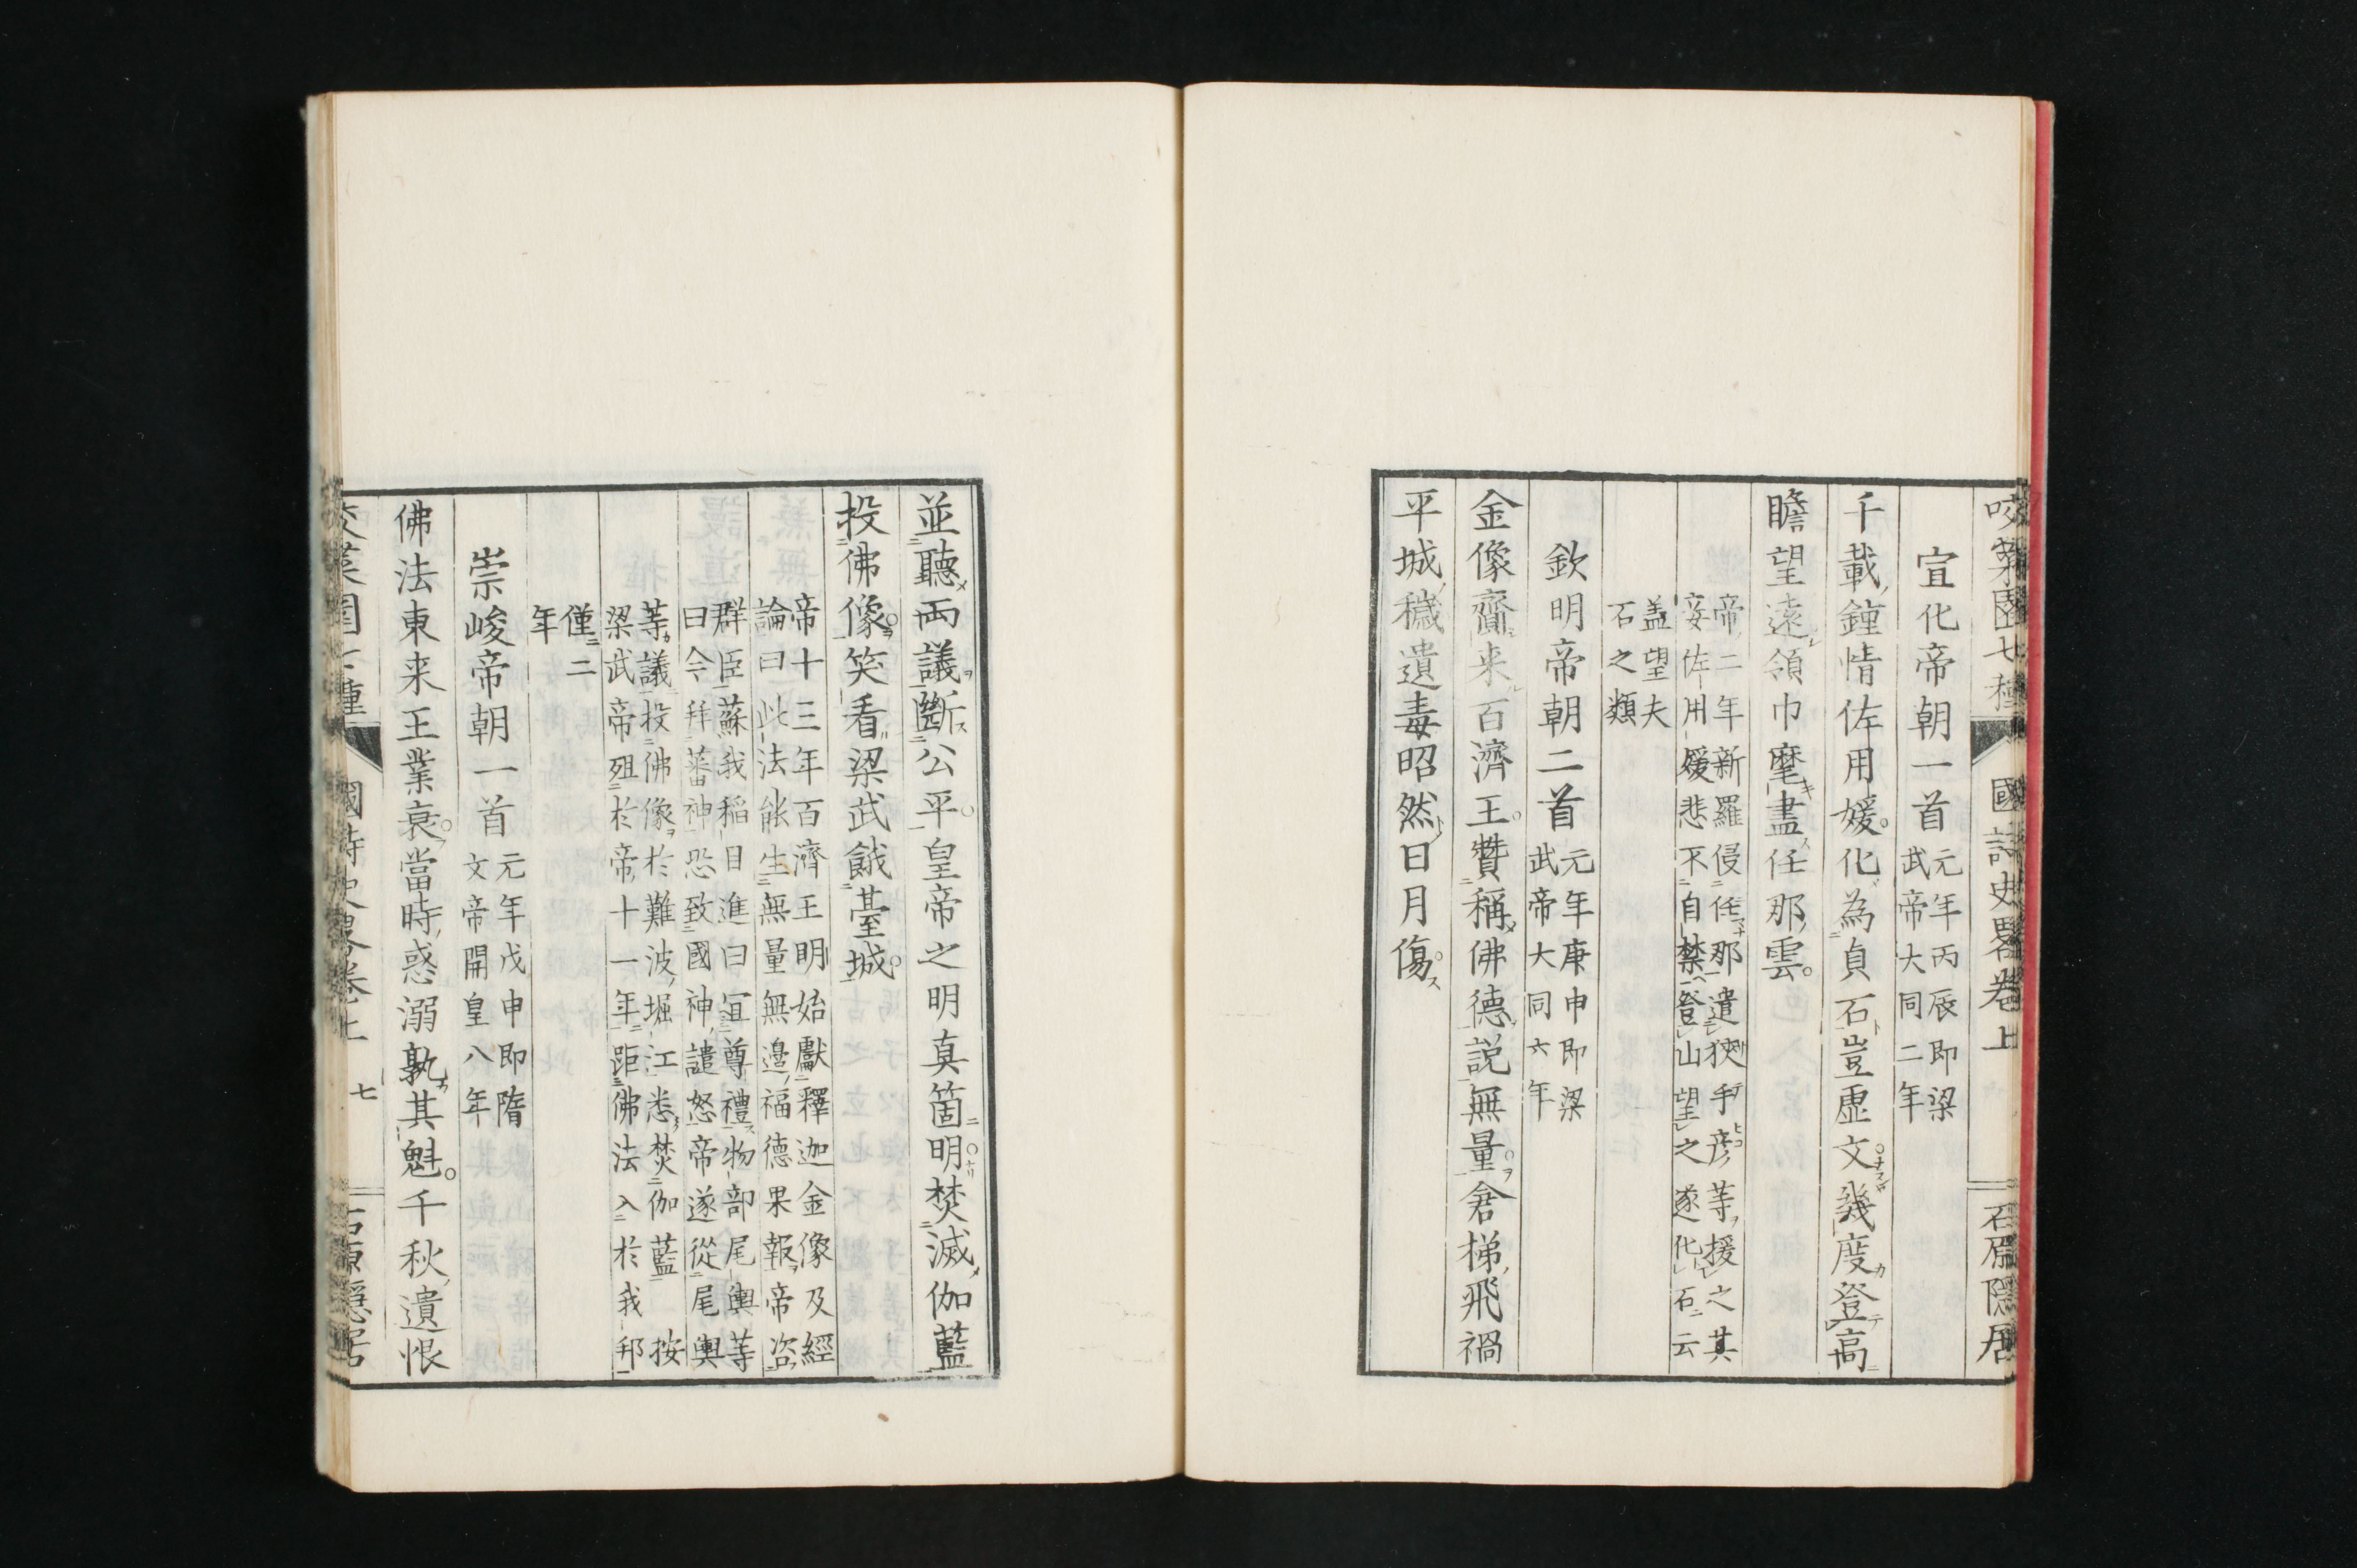 咬菜園七種 國詩史畧卷上 石厡隱居
宣化帝朝一首 元年丙辰即梁
武帝大同二年
千載鍾情佐用媛化為貞石豈虛文幾度登高
瞻望遠領巾麾盡任那雲
帝二年新羅侵任那遣狹手彦等援之其
妾佐用媛悲不自禁登山望之遂化石云
盖望夫
石之類
欽明帝朝二首 元年庚申即梁
武帝大同六年
金像齎来百濟王贊稱佛德説無量倉梯飛禍
平城穢遺毒昭然日月傷
並聽兩議斷公平皇帝之明真箇明焚滅伽藍
投佛像笑看梁武餓臺城
帝十三年百濟王明始獻釋迦金像及經
論曰此法能生無量無邉福德果報帝咨
群臣蘇我稻目進曰宜尊禮物部尾輿等
曰今拜蕃神恐致國神譴怒帝遂從尾輿
等議投佛像於難波堀江悉焚伽藍 按
梁武帝殂於帝十一年距佛法入於我邦
僅二
年
崇峻帝朝一首 元年戊申即隋
文帝開皇八年
佛法東来王業衰當時惑溺孰其魁千秋遺恨
國詩史畧卷上 七